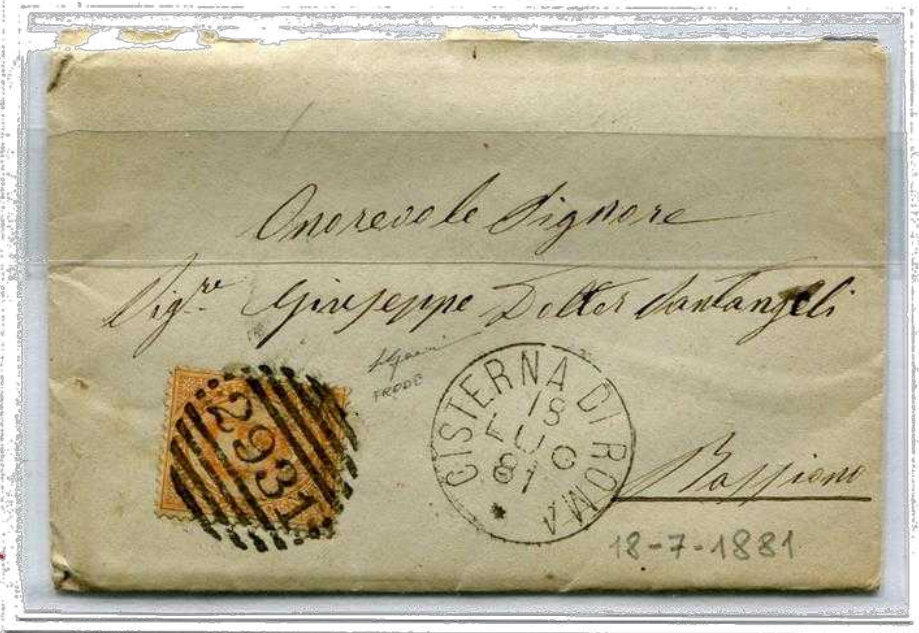 Onorevole Signore
Sig.re Giuseppe Dottor Santangeli
FRODE
2931
CISTERNA DI ROMA
18
LUG
81
Bassiano
18-7-1881